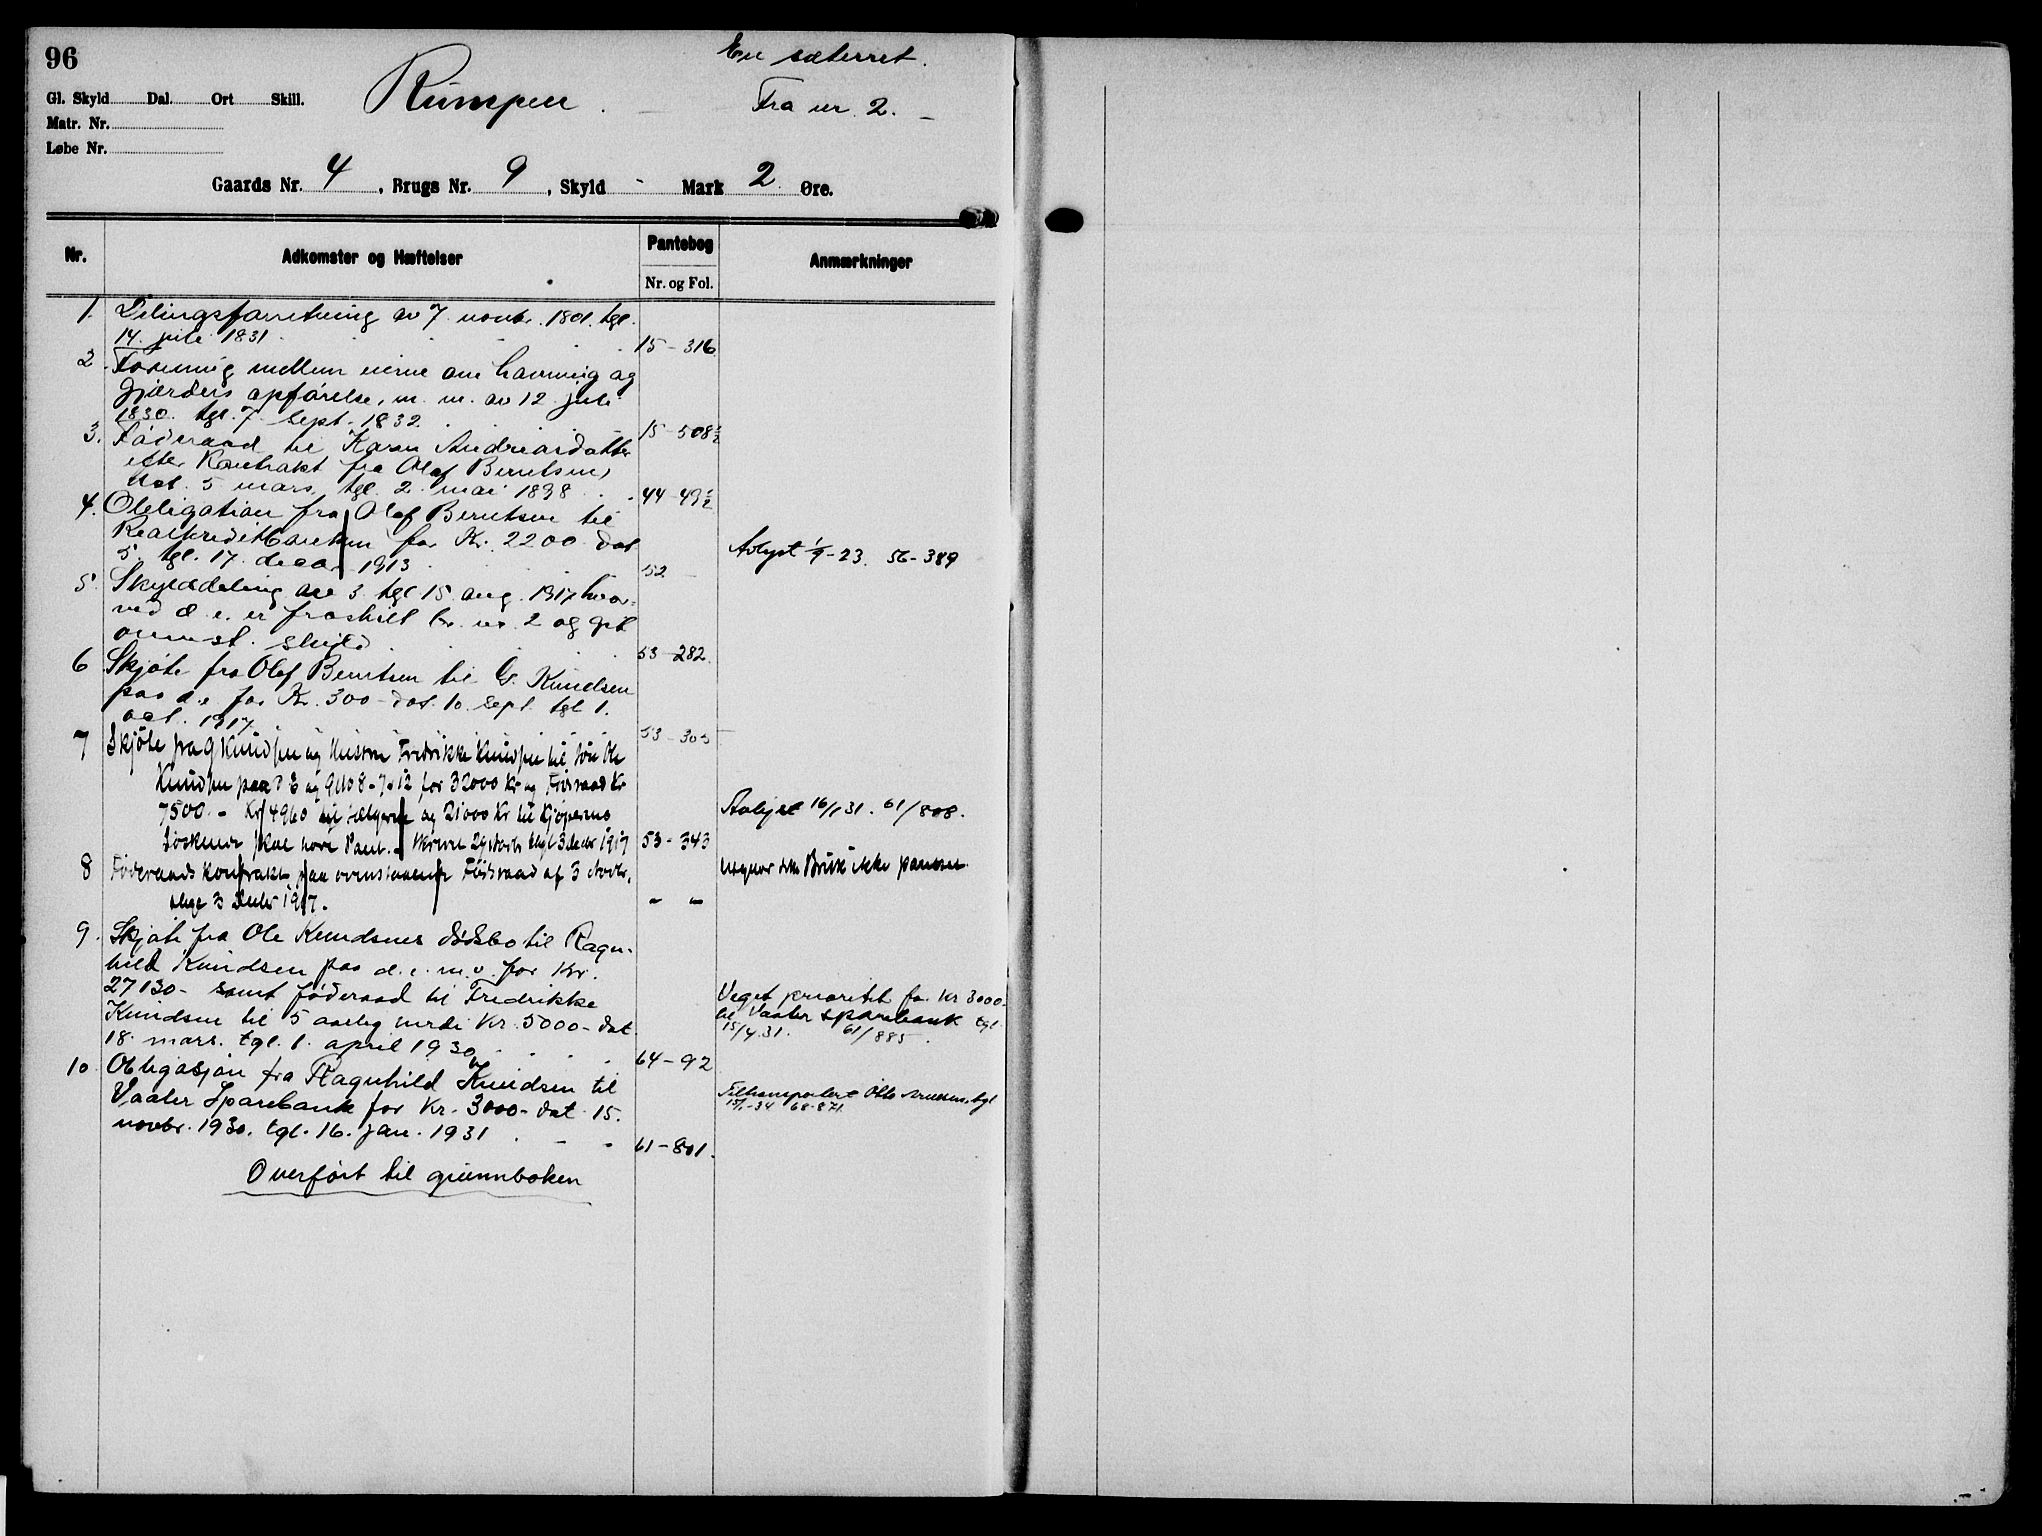 96
En sæterret.
Gl. Skyld Dal. Ort Skill.
Rumpen.
Fra nr. 2.
Matr. Nr.
Løbe Nr.
Gaards Nr. 4, Brugs Nr. 9, Skyld - Mark 2 Øre.
Nr.
Adkomster og Hæftelser
Pantebog
Nr. og Fol.
Anmærkninger
1. Delingsforretning av 7. novbr. 1801. tgl.
14. juli 1831 15-316
2. Forening mellem eierne om havning og
gjærders opførelse, m. m. av 12 juli
1830. tgl. 7. sept. 1832 15-508½
3. Føderaad til Karen Andreasdatter
efter Kontrakt fra Olaf Berntsen,
dat. 5 mars, tgl. 2. mai 1898 44-49½
4. Obligation fra Olaf Berntsen til
Realkreditbanken for Kr. 2200 dat
5. tgl. 17. decbr 1913 52
Avlyst 1/9-23. 56-389
5. Skylddeling av 3. tgl 15. aug. 1917 hvor-
ved d. e. er fraskilt br. nr. 2 og git
ovennst. skyld 53-282
6 Skjøte fra Olaf Berntsen til G. Knudsen
paa d.e. for Kr. 300- dat. 10. sept. tgl 1.
oct. 1917 53-305
7 Skjøte fra G Knudsen og Hustru Fredrikke Knudsen til Søn Ole
Knudsen paa d E og 8-7-12 for 32000 Kr og Føderaad Kr
7500.- Kr 4960 til sælgerne og 21000 Kr til Kjøperens
Søskende skal have Pant. tlgl 3 decbr 1917 53-343
Avlyst 16/1 31. 61/808.
8 Føderaads kontrakt paa ovenstaaende Føderaad af 3 Novbr,
tlgl 3 Decbr 1917. - -
Bruk ikke
9. Skjøte fra Ole Knudsens dødsbo til Ragn-
hild Knudsen paa d. e. m. v. for Kr.
27130- samt føderaad til Fredrikke
Knudsen til 5 aarlig verdi Kr. 5000- dat
18. mars. tgl. 1. april 1930 64-92
Veget prioritet for Kr 3000-
til Vaaler sparebank tgl
15/4.31. 61/885.
10. Obligasjon fra Ragnhild Knudsen til
Vaaler Sparebank for Kr. 3000- dat 15.
novbr. 1930. tgl. 16. jan. 1931 61-801.
Tiltransportert Otto tgl
15/1-34 68-871
Overført til grunnboken